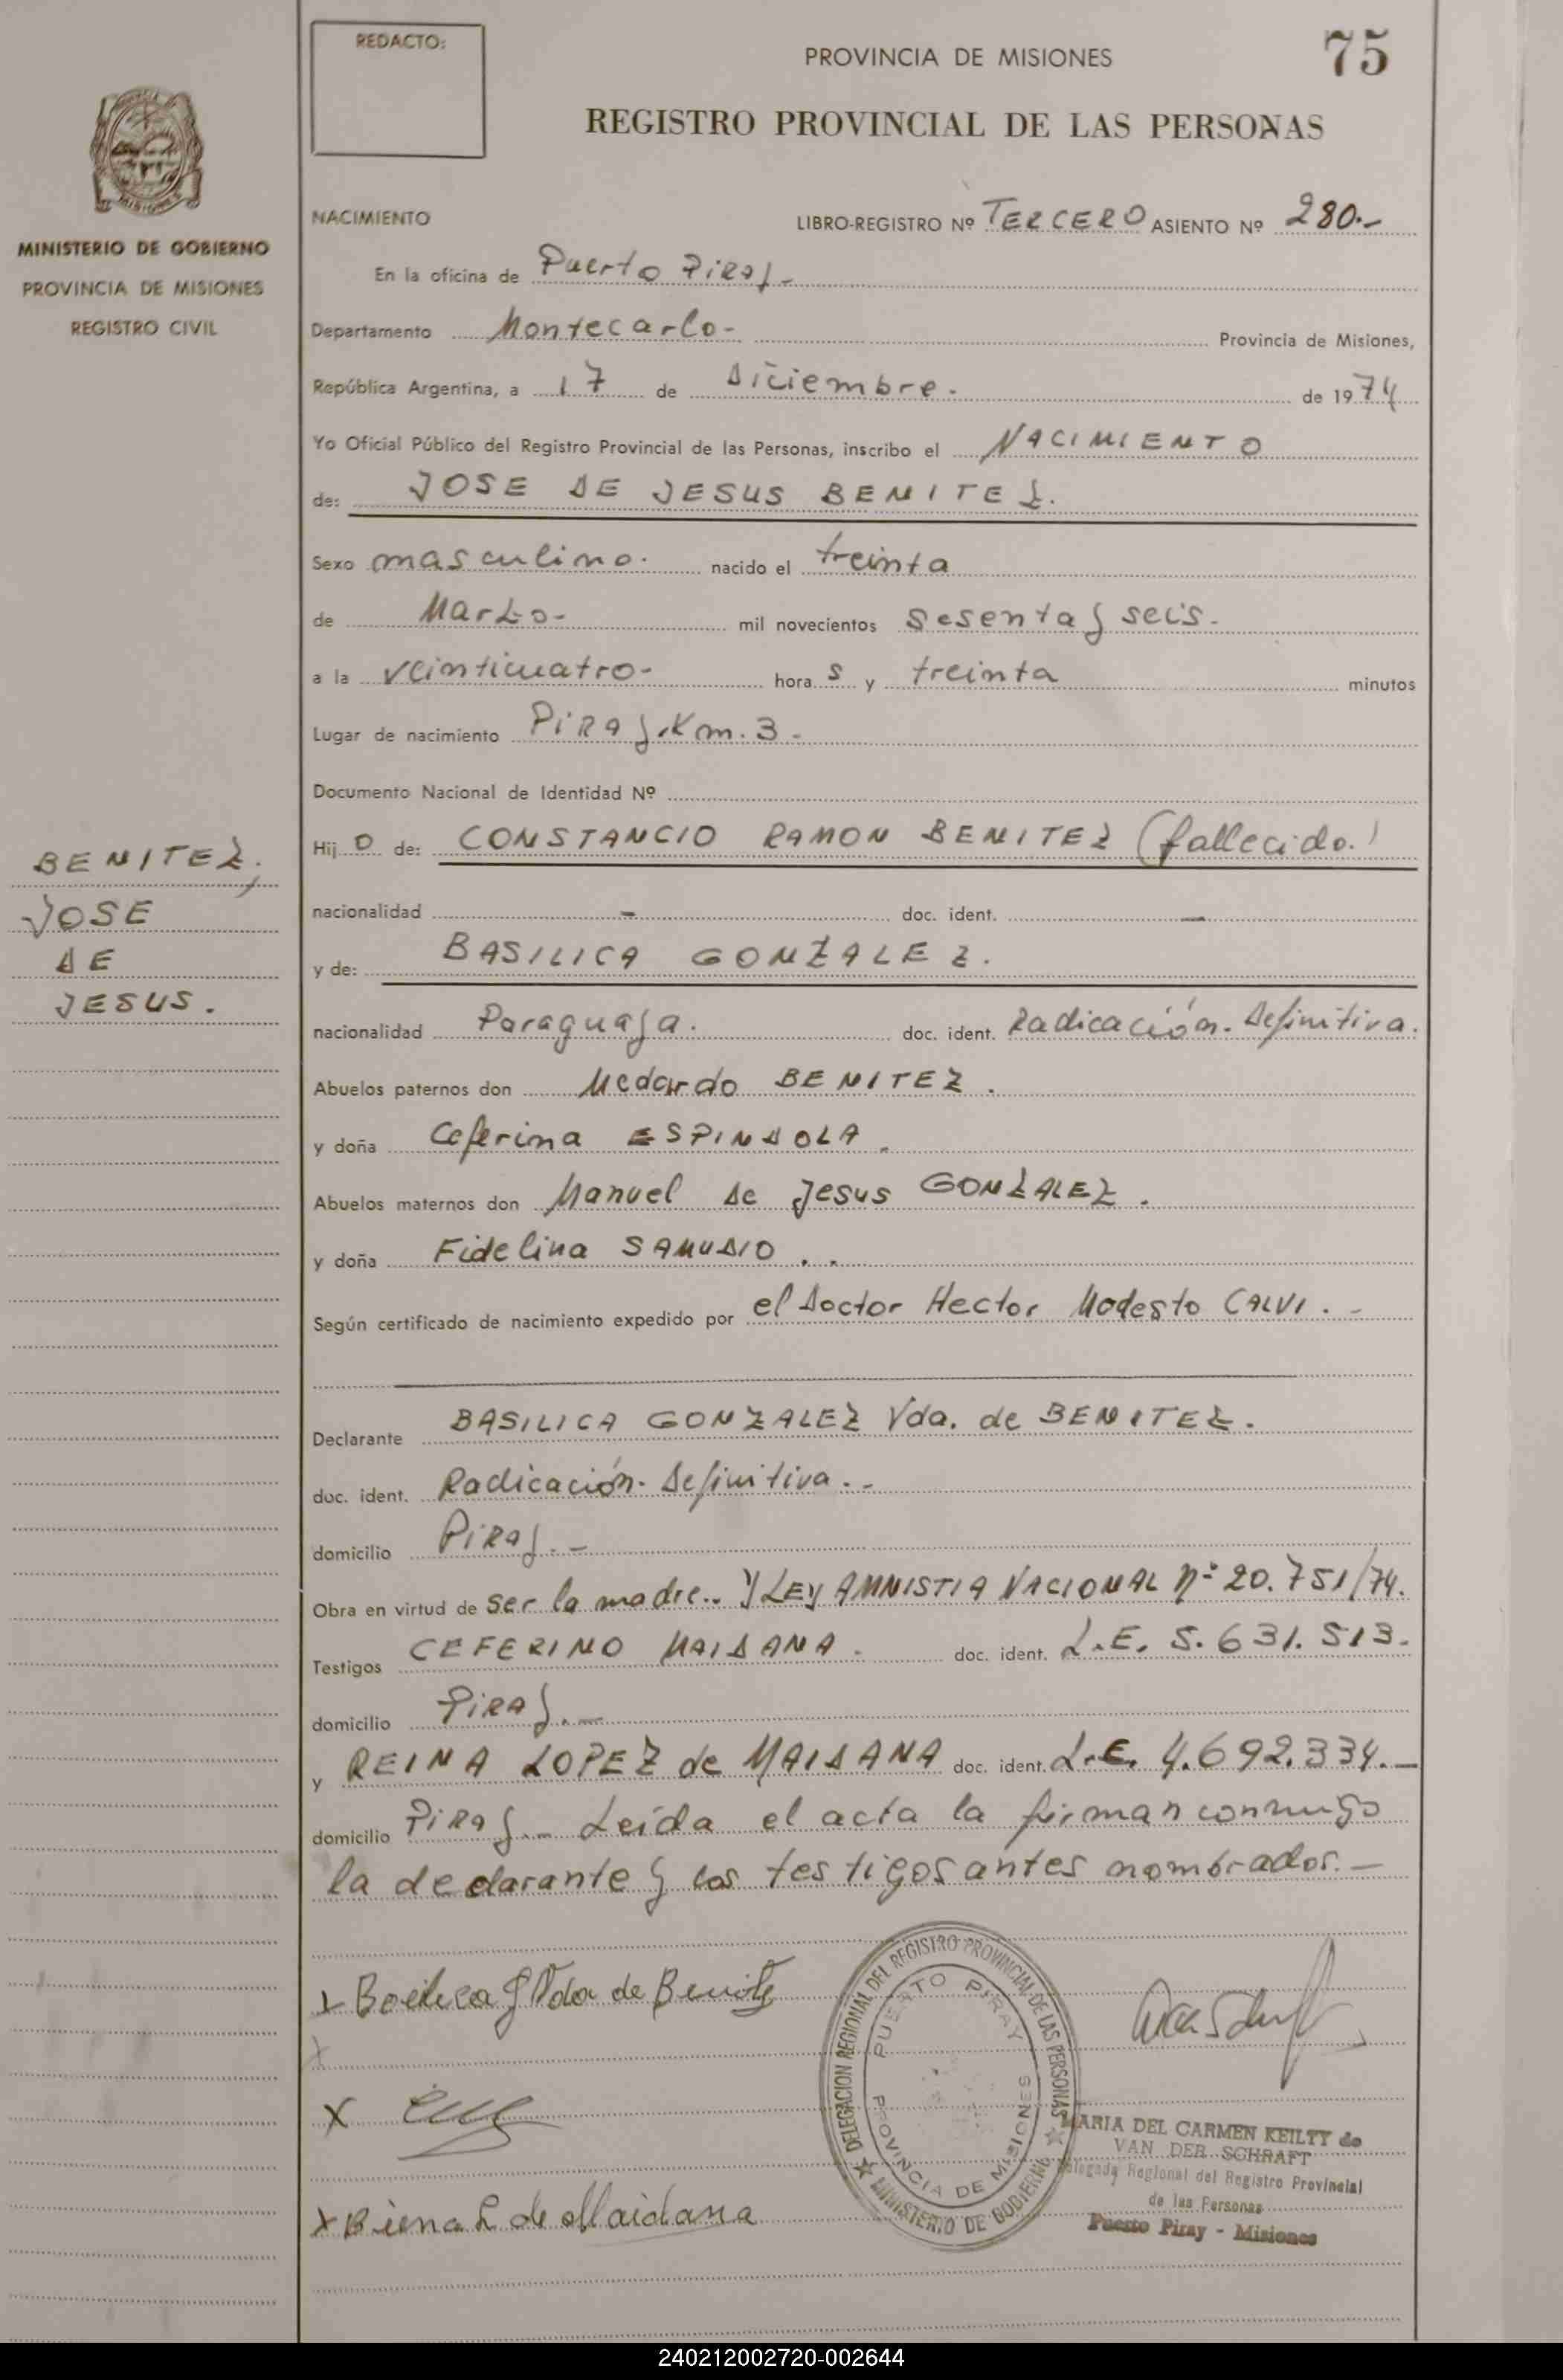 REDACTO:
PROVINCIA DE MISIONES
75
REGISTRO PROVINCIAL DE LAS PERSONAS
MINISTERIO DE GOBIERNO
PROVINCIA DE MISIONES
REGISTRO CIVIL
NACIMIENTO LIBRO-REGISTRO Nº TERCERO ASIENTO Nº 280.-
En la oficina de Puerto Piray-
Departamento Montecarlo- Provincia de Misiones,
República Argentina, a 17 de Diciembre. de 1974
Yo Oficial Público del Registro Provincial de las Personas, inscribo el NACIMIENTO
de: JOSE DE JESUS BENITEZ.
Sexo masculino. nacido el treinta
de Marzo- mil novecientos sesenta y seis.
a la veinticuatro- hora s y treinta minutos
Lugar de nacimiento PiRAy.Km.3-
Documento Nacional de Identidad Nº
Hij o de: CONSTANCIO RAMON BENITEZ (fallecido.)
nacionalidad - doc. ident. -
y de: BASILICA GONZALEZ.
nacionalidad Paraguaya. doc. ident. Radicación. Definitiva.
Abuelos paternos don Medardo BENITEZ.
y doña Ceferina ESPINDOLA.
Abuelos maternos don Manuel de Jesus GONZALEZ.
y doña Fidelina SAMUDIO..
Según certificado de nacimiento expedido por el Doctor Hector Modesto CALVI.-
Declarante BASILICA GONZALEZ Vda. de BENITEZ.
doc. ident. Radicación. Definitiva.-
domicilio PiRAy.-
Obra en virtud de ser la madre.. Y LEY AMNISTIA NACIONAL Nº 20.751/74.
Testigos CEFERINO MAIDANA. doc. ident. L.E. 5.631.513.
domicilio PiRAy.-
y REINA LOPEZ de MAIDANA doc. ident. L.E. 4.692.334.-
domicilio PiRAy.- Leída el acta la firman conmigo
la declarante y los testigos antes nombrados.-
BENITEZ,
JOSE
DE
JESUS.
x G Vda de Benitez
x
x
x L de Maidana
DELEGACION REGIONAL DEL REGISTRO PROVINCIAL DE LAS PERSONAS
MINISTERIO DE GOBIERNO
PUERTO PIRAY
PROVINCIA DE MISIONES
MARIA DEL CARMEN KEILTY de
VAN DER SCHRAFT
Delegada Regional del Registro Provincial
de las Personas
Puerto Piray - Misiones
240212002720-002644